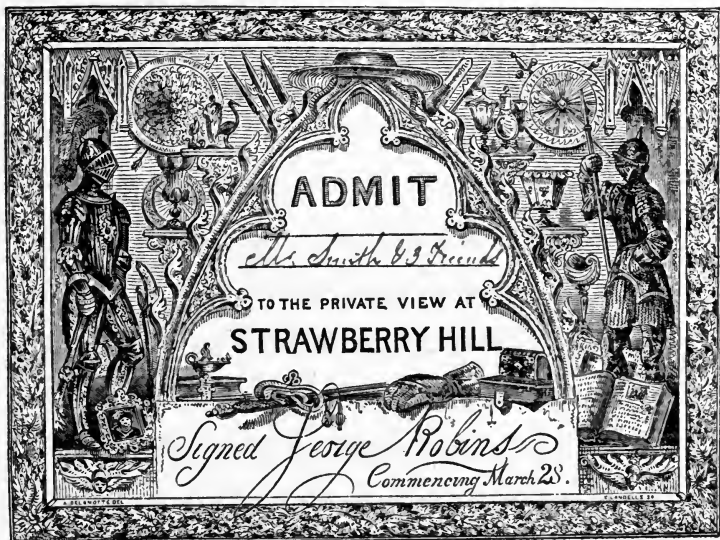 ADMIT
Mr. Smith & 3 Friends
TO THE PRIVATE VIEW AT
STRAWBERRY HILL
Signed George Robins
Commencing March 28.
A. DELAMOTTE DEL
E. LANDELLS SC